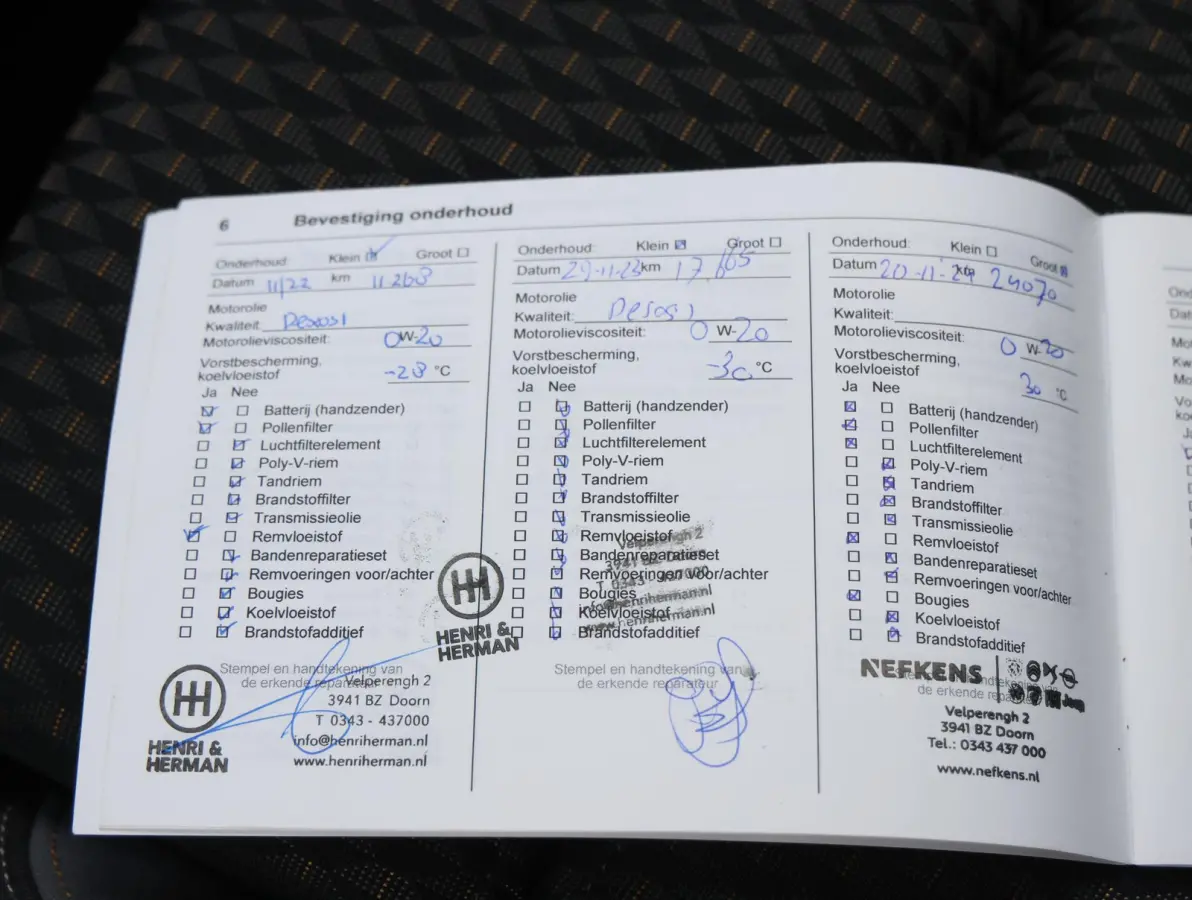 6 Bevestiging onderhoud
Onderhoud: Klein Groot
Datum 11/22 km 11 268
Motorolie
Kwaliteit: Dexos1
Motorolieviscositeit: 0W-20
Vorstbescherming,
koelvloeistof -28 °C
Ja Nee
Batterij (handzender)
Pollenfilter
Luchtfilterelement
Poly-V-riem
Tandriem
Brandstoffilter
Transmissieolie
Remvloeistof
Bandenreparatieset
Remvoeringen voor/achter
Bougies
Koelvloeistof
Brandstofadditief
Stempel en handtekening van
de erkende reparateur
HENRI &
HERMAN
Velperengh 2
3941 BZ Doorn
T 0343 - 437000
info@henriherman.nl
www.henriherman.nl
Onderhoud: Klein Groot
Datum 29-11-23 km
Motorolie
Kwaliteit:
Motorolieviscositeit: 0 W-20
Vorstbescherming,
koelvloeistof -30 °C
Ja Nee
Batterij (handzender)
Pollenfilter
Luchtfilterelement
Poly-V-riem
Tandriem
Brandstoffilter
Transmissieolie
Remvloeistof
Bandenreparatieset
Remvoeringen voor/achter
Bougies
Koelvloeistof
Brandstofadditief
HENRI &
HERMAN
Velperengh 2
3941 BZ Doorn
T 0343 - 437000
info@henriherman.nl
www.henriherman.nl
Stempel en handtekening van
de erkende reparateur
Onderhoud: Klein Groot
Datum 20-11-24 km 24070
Motorolie
Kwaliteit:
Motorolieviscositeit: 0 W-20
Vorstbescherming,
koelvloeistof 30 °C
Ja Nee
Batterij (handzender)
Pollenfilter
Luchtfilterelement
Poly-V-riem
Tandriem
Brandstoffilter
Transmissieolie
Remvloeistof
Bandenreparatieset
Remvoeringen voor/achter
Bougies
Koelvloeistof
Brandstofadditief
NEFKENS
Jeep
de erkende
Velperengh 2
3941 BZ Doorn
Tel.: 0343 437 000
www.nefkens.nl